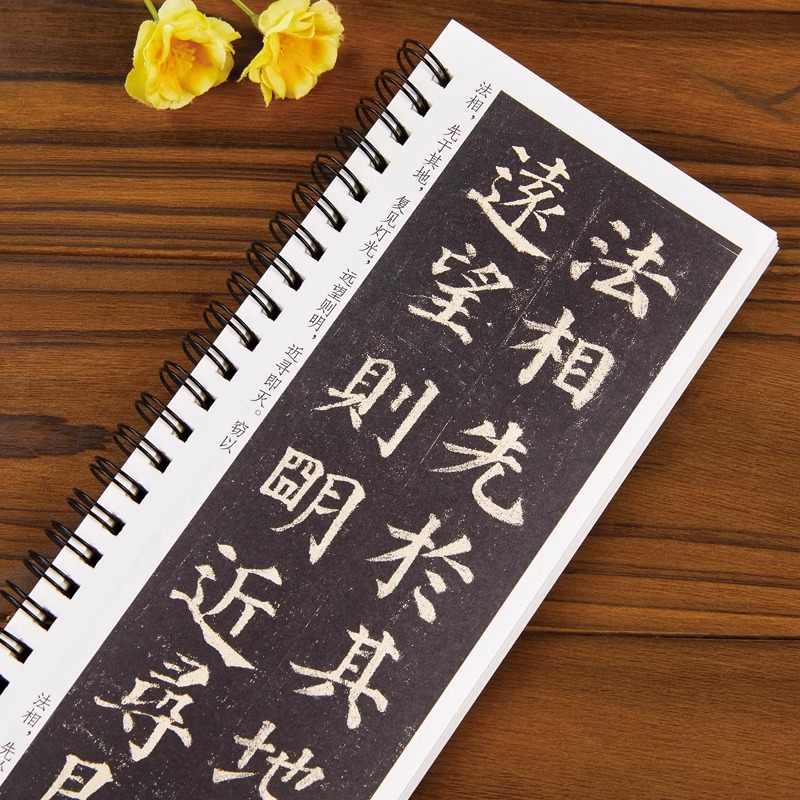 法相，先于其地，复见灯光，远望则明，近寻即灭。窃以
法相先於其地
遠望則明近尋
法相，先